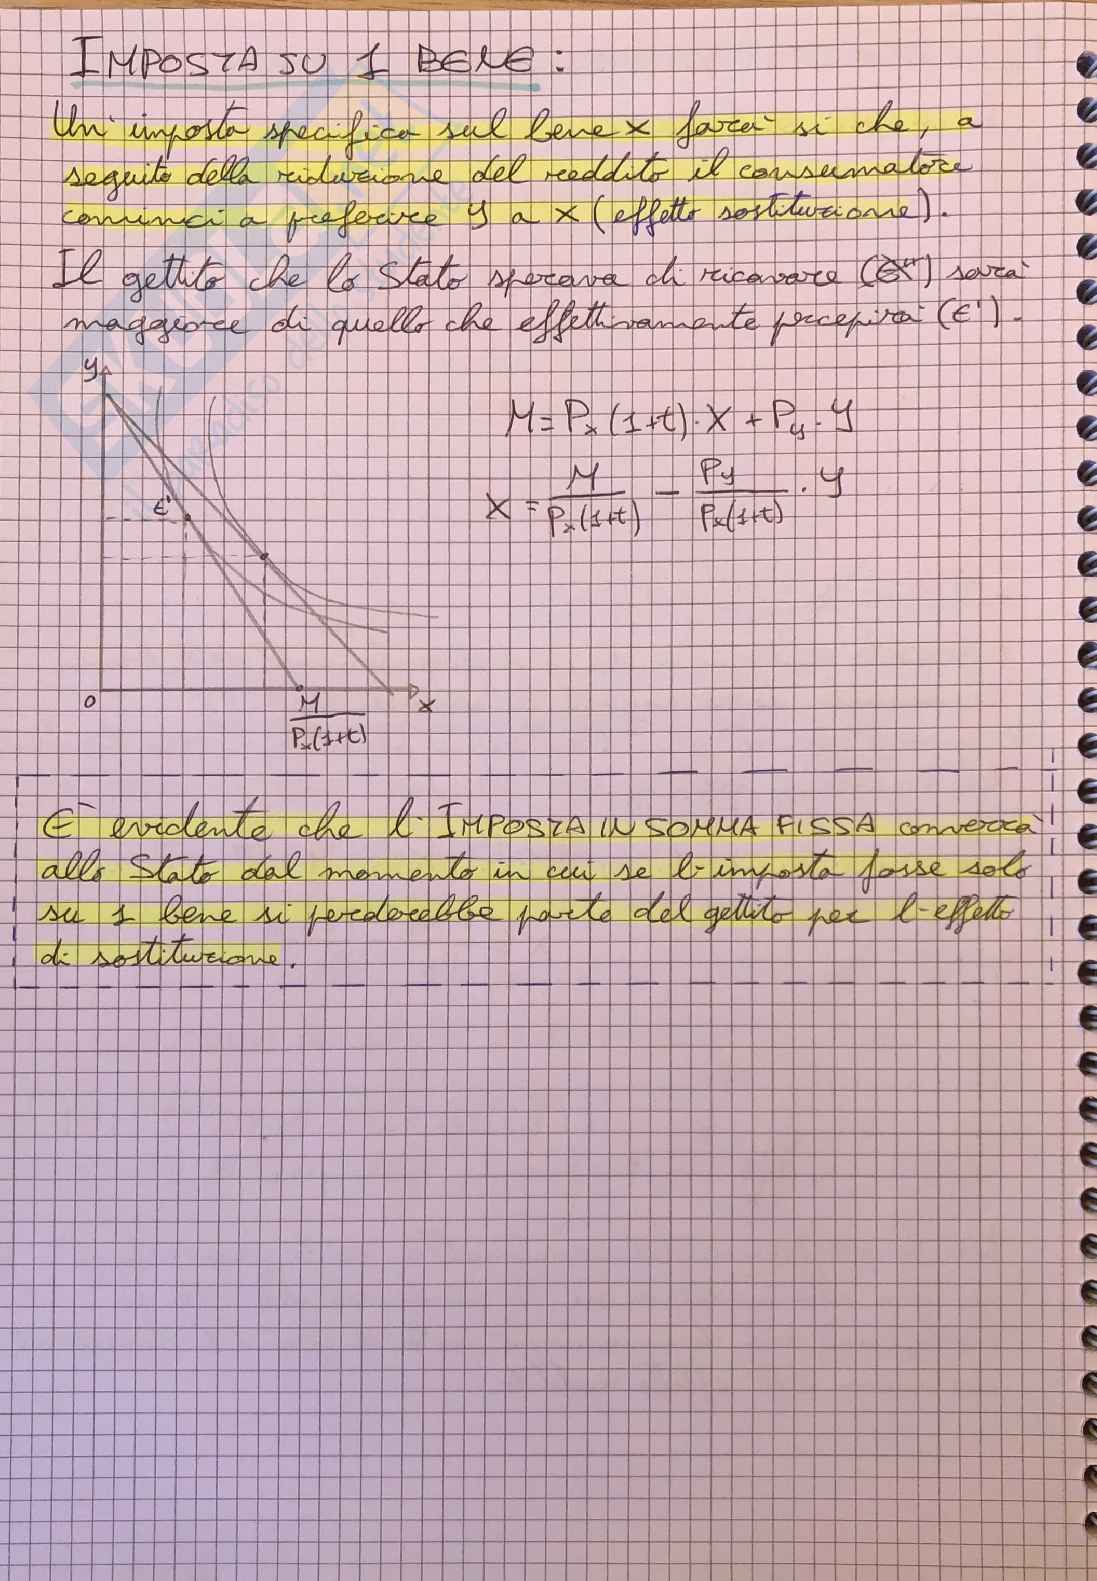 IMPOSTA SU 1 BENE:
Un' imposta specifica sul bene x farà sì che, a
seguito della riduzione del reddito il consumatore
cominci a preferire y a x (effetto sostituzione).
Il gettito che lo Stato sperava di ricavare (E") sarà
maggiore di quello che effettivamente percepirà (E').
y
M = Px (1+t) · X + Py · Y
X = M / Px (1+t) - Py / Px (1+t) · Y
E'
0
M / Px (1+t)
x
E' evidente che l' IMPOSTA IN SOMMA FISSA converrà
allo Stato dal momento in cui se l' imposta fosse solo
su 1 bene si perderebbe parte del gettito per l' effetto
di sostituzione.